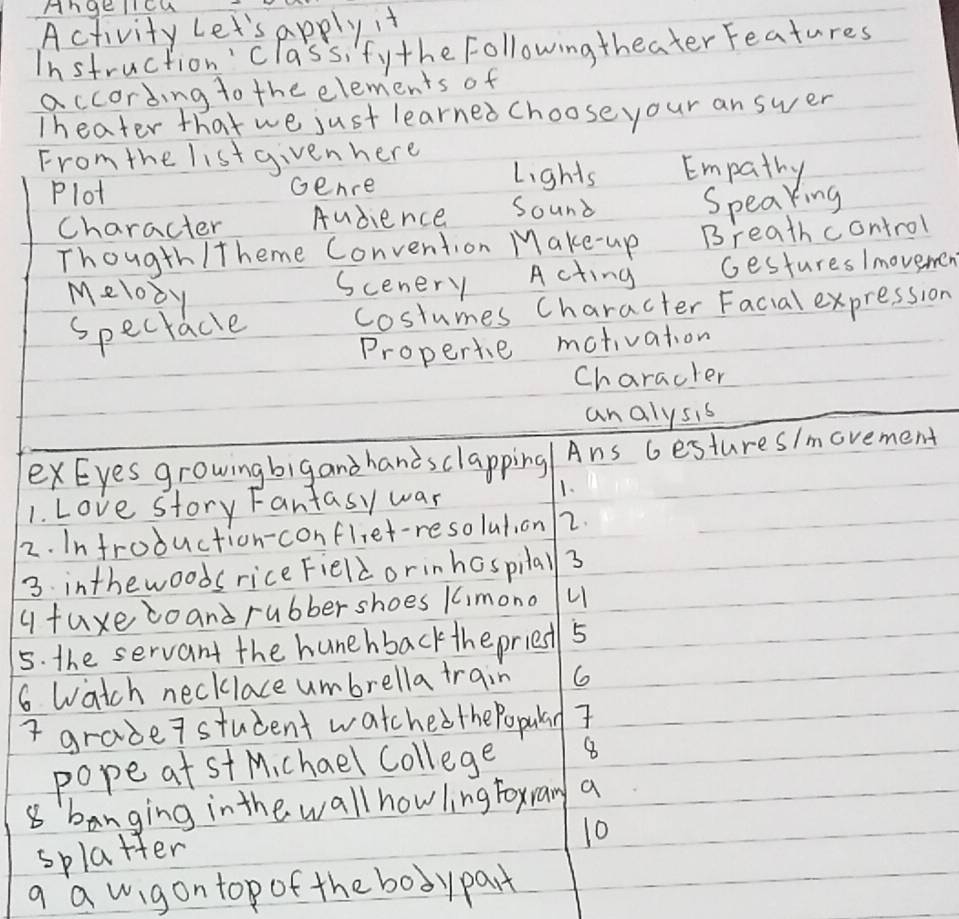 Angelica
Activity Let's apply it
Instruction: Classify the Following theater Features
according to the elements of
Theater that we just learned choose your answer
From the list given here
Plot Genre Lights Empathy
Character Audience Sound Speaking
Thougth/Theme Convention Make-up Breath control
Melody Scenery Acting Gestures/movemen
Spectacle Costumes Character Facial expression
Propertie motivation
Character
analysis
ex Eyes growing big and hands clapping Ans Gestures/movement
1. Love story Fantasy war 1.
2. Introduction-confliet-resolution 2.
3. in the woods rice Field or in hospital 3
4 tuxedo and rubber shoes Kimono 4
5. the servant the hunehback the priest 5
6 Watch necklace umbrella train 6
7 grade 7 student watched the Popular 7
pope at st Michael College 8
8 banging in the wall howling Fox rain 9
splatter 10
9 a wig on top of the body part